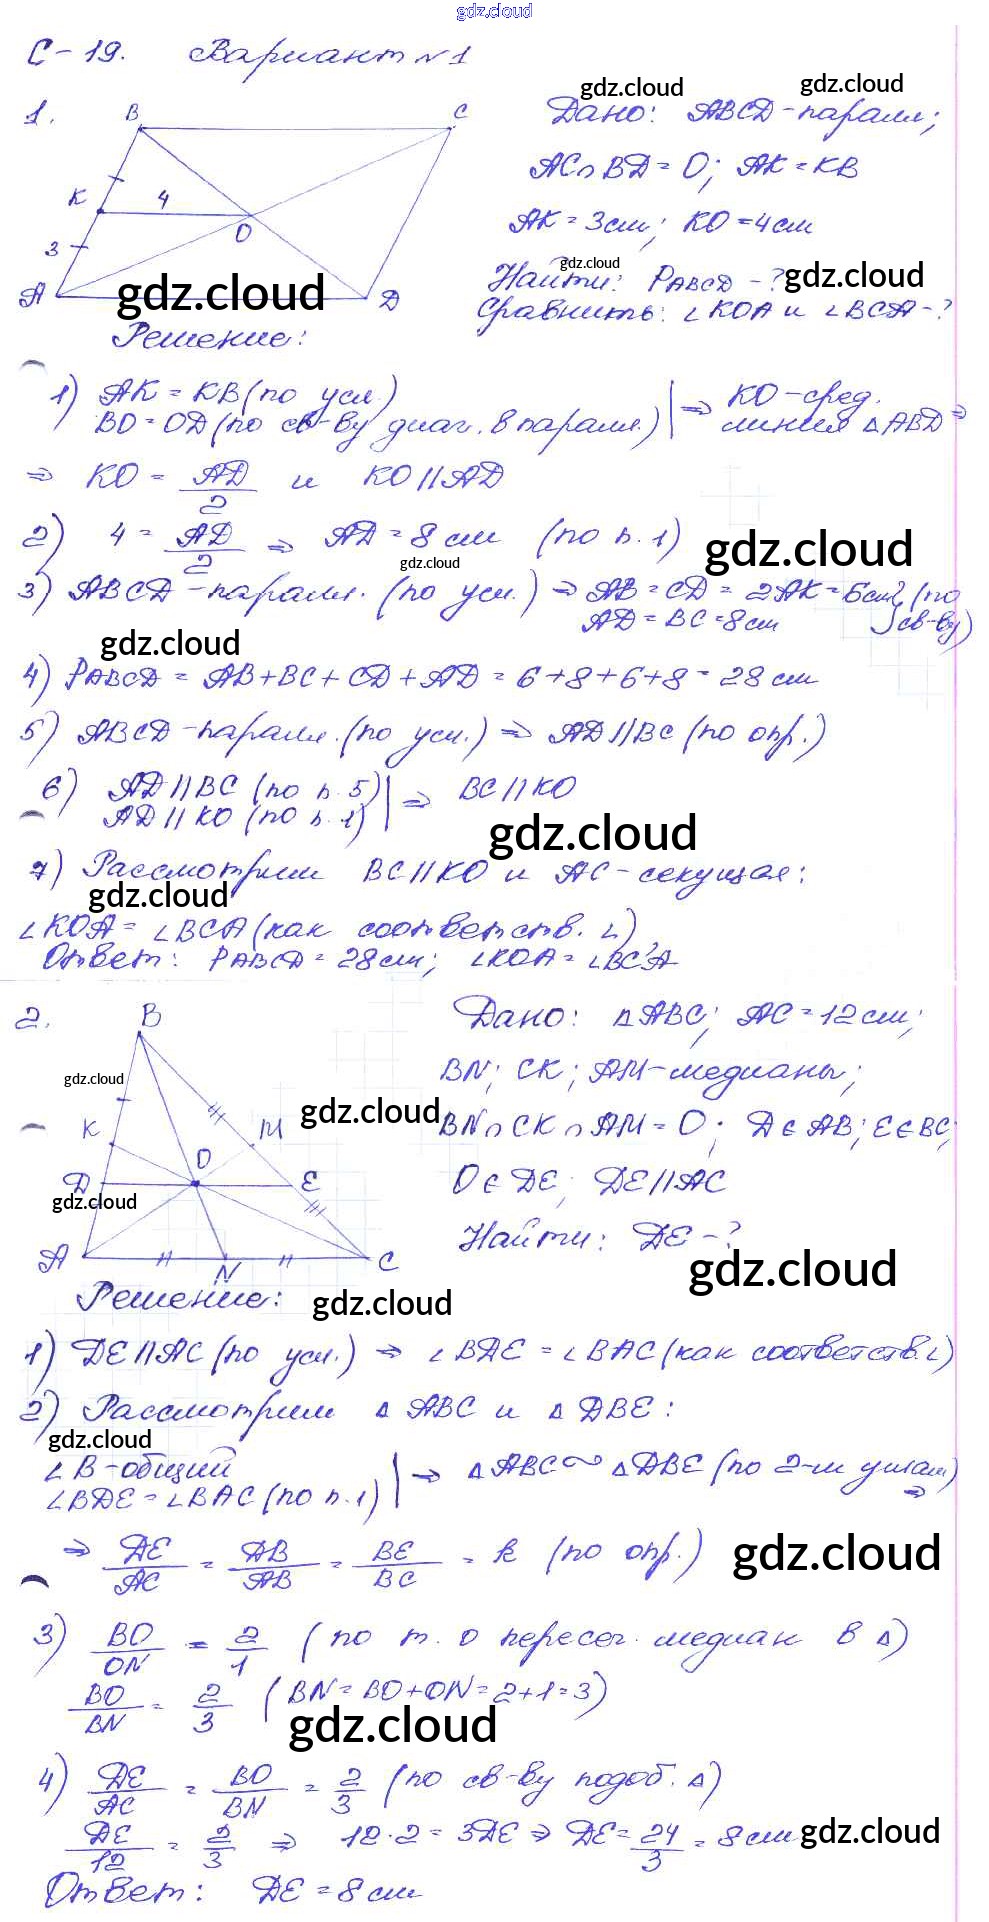 gdz.cloud
С-19. Вариант №1
gdz.cloud gdz.cloud
1. B C Дано: ABCD-паралл;
AC∩BD=O; AK=KB
K 4 AK=3см; KO=4см
3 O gdz.cloud
Найти: PABCD-? gdz.cloud
A gdz.cloud D Сравнить: ∠KOA и ∠BCA-?
Решение:
1) AK=KB (по усл.) | ⇒ KO-сред.
BO=OD (по св-ву диаг. в паралл.) | линия △ABD ⇒
⇒ KO = AD/2 и KO||AD
2) 4 = AD/2 ⇒ AD=8см (по п.1) gdz.cloud
gdz.cloud
3) ABCD-паралл. (по усл.) ⇒ AB=CD=2AK=6см (по
AD=BC=8см св-ву)
gdz.cloud
4) PABCD = AB+BC+CD+AD=6+8+6+8=28см
5) ABCD-паралл. (по усл.) ⇒ AD||BC (по опр.)
6) AD||BC (по п.5) | ⇒ BC||KO
AD||KO (по п.1) | gdz.cloud
7) Рассмотрим BC||KO и AC-секущая:
gdz.cloud
∠KOA=∠BCA (как соответств. ∠)
Ответ: PABCD=28см; ∠KOA=∠BCA
2. B Дано: △ABC; AC=12см;
gdz.cloud BN; CK; AM-медианы;
gdz.cloud
K M BN∩CK∩AM=O; D∈AB; E∈BC;
D O E O∈DE; DE||AC
gdz.cloud
A N C Найти: DE-?
gdz.cloud
Решение: gdz.cloud
1) DE||AC (по усл.) ⇒ ∠BDE=∠BAC (как соответств. ∠)
2) Рассмотрим △ABC и △DBE:
gdz.cloud
∠B-общий | ⇒ △ABC∾△DBE (по 2-м углам)
∠BDE=∠BAC (по п.1) | ⇒
⇒ DE/AC = DB/AB = BE/BC = k (по опр.) gdz.cloud
3) BO/ON = 2/1 (по т. о пересеч. медиан в △)
BO/BN = 2/3 (BN=BO+ON=2+1=3)
gdz.cloud
4) DE/AC = BO/BN = 2/3 (по св-ву подоб. △)
DE/12 = 2/3 ⇒ 12·2=3DE ⇒ DE=24/3=8см gdz.cloud
Ответ: DE=8см